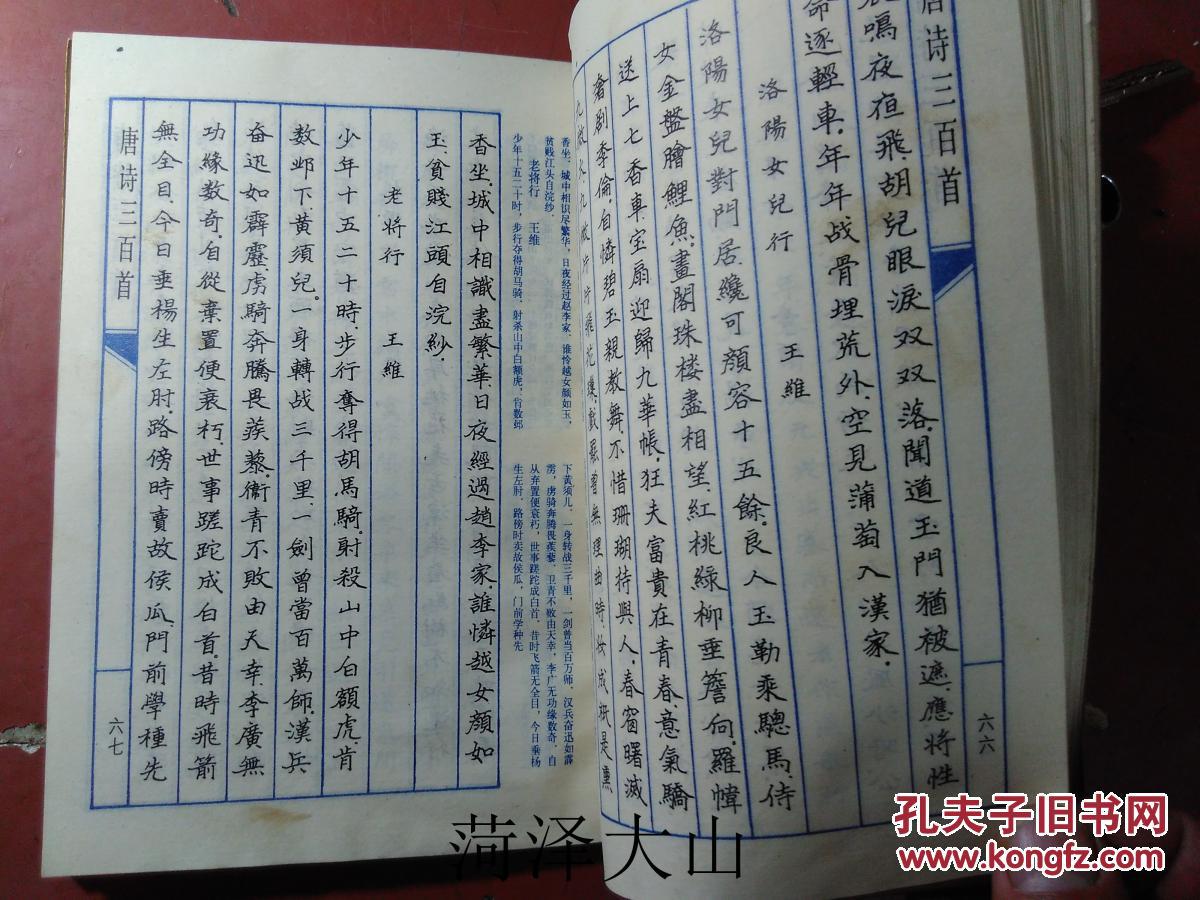 唐诗三百首
哀鳴夜夜飛.胡兒眼淚双双落.聞道玉門猶被遮.應將性
命逐輕車.年年战骨埋荒外.空見蒲萄入漢家.
洛陽女兒行 王維
洛陽女兒對門居.纔可顏容十五餘.良人玉勒乘驄馬.侍
女金盤膾鯉魚.畫閣珠楼盡相望.紅桃綠柳垂簷向.羅幃
送上七香車.宝扇迎歸九華帳.狂夫富貴在青春.意氣驕
奢劇季倫.自憐碧玉親教舞.不惜珊瑚持與人.春窗曙滅
九微火.九微片片飛花璅.戲罷曾無理曲時.妝成祇是熏
六六
香坐.城中相识尽繁华，日夜经过赵李家，谁怜越女颜如玉，
贫贱江头自浣纱.
老将行 王维
少年十五二十时，步行夺得胡马骑.射杀山中白额虎，肯数邺
下黄须儿.一身转战三千里，一剑曾当百万师.汉兵奋迅如霹
雳，虏骑奔腾畏蒺藜.卫青不败由天幸，李广无功缘数奇.自
从弃置便衰朽，世事蹉跎成白首.昔时飞箭无全目，今日垂杨
生左肘.路傍时卖故侯瓜，门前学种先
香坐.城中相識盡繁華.日夜經過趙李家.誰憐越女顏如
玉.貧賤江頭自浣紗.
老將行 王維
少年十五二十時.步行奪得胡馬騎.射殺山中白額虎肯
数邺下黃須兒。一身轉战三千里.一劍曾當百萬師.漢兵
奋迅如霹靂.虏騎奔騰畏蒺藜.衛青不敗由天幸.李廣無
功緣数奇.自從棄置便衰朽.世事蹉跎成白首.昔時飛箭
無全目.今日垂楊生左肘.路傍時賣故侯瓜.門前學種先
唐诗三百首
六七
菏泽大山
孔夫子旧书网
www.kongfz.com